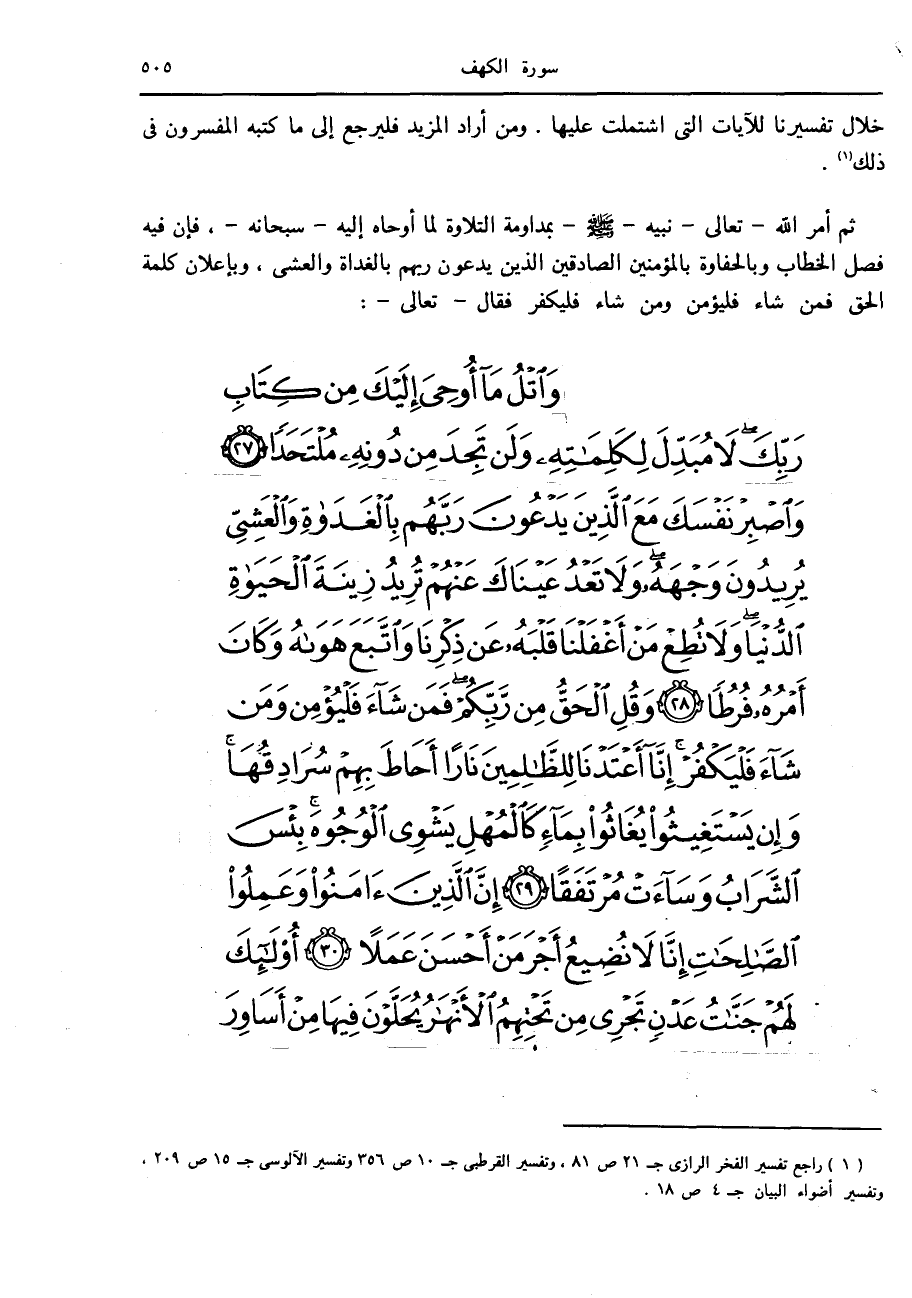 سورة الكهف ٥٠٥
خلال تفسيرنا للآيات التى اشتملت عليها . ومن أراد المزيد فليرجع إلى ما كتبه المفسرون فى
ذلك(١) .
ثم أمر الله – تعالى – نبيه – ﷺ – بمداومة التلاوة لما أوحاه إليه – سبحانه – ، فإن فيه
فصل الخطاب وبالحفاوة بالمؤمنين الصادقين الذين يدعون ربهم بالغداة والعشى ، وبإعلان كلمة
الحق فمن شاء فليؤمن ومن شاء فليكفر فقال – تعالى – :
وَٱتْلُ مَآ أُوحِىَ إِلَيْكَ مِن كِتَابِ
رَبِّكَ ۖ لَا مُبَدِّلَ لِكَلِمَـٰتِهِۦ وَلَن تَجِدَ مِن دُونِهِۦ مُلْتَحَدًا ٢٧
وَٱصْبِرْ نَفْسَكَ مَعَ ٱلَّذِينَ يَدْعُونَ رَبَّهُم بِٱلْغَدَوٰةِ وَٱلْعَشِىِّ
يُرِيدُونَ وَجْهَهُۥ ۖ وَلَا تَعْدُ عَيْنَاكَ عَنْهُمْ تُرِيدُ زِينَةَ ٱلْحَيَوٰةِ
ٱلدُّنْيَا ۖ وَلَا تُطِعْ مَنْ أَغْفَلْنَا قَلْبَهُۥ عَن ذِكْرِنَا وَٱتَّبَعَ هَوَىٰهُ وَكَانَ
أَمْرُهُۥ فُرُطًا ٢٨ وَقُلِ ٱلْحَقُّ مِن رَّبِّكُمْ ۖ فَمَن شَآءَ فَلْيُؤْمِن وَمَن
شَآءَ فَلْيَكْفُرْ ۚ إِنَّآ أَعْتَدْنَا لِلظَّـٰلِمِينَ نَارًا أَحَاطَ بِهِمْ سُرَادِقُهَا ۚ
وَإِن يَسْتَغِيثُوا۟ يُغَاثُوا۟ بِمَآءٍ كَٱلْمُهْلِ يَشْوِى ٱلْوُجُوهَ ۚ بِئْسَ
ٱلشَّرَابُ وَسَآءَتْ مُرْتَفَقًا ٢٩ إِنَّ ٱلَّذِينَ ءَامَنُوا۟ وَعَمِلُوا۟
ٱلصَّـٰلِحَـٰتِ إِنَّا لَا نُضِيعُ أَجْرَ مَنْ أَحْسَنَ عَمَلًا ٣٠ أُو۟لَـٰٓئِكَ
لَهُمْ جَنَّـٰتُ عَدْنٍ تَجْرِى مِن تَحْتِهِمُ ٱلْأَنْهَـٰرُ يُحَلَّوْنَ فِيهَا مِنْ أَسَاوِرَ
( ١ ) راجع تفسير الفخر الرازى جـ ٢١ ص ٨١ ، وتفسير القرطبى جـ ١٠ ص ٣٥٦ وتفسير الآلوسى جـ ١٥ ص ٢٠٩ ،
وتفسير أضواء البيان جـ ٤ ص ١٨ .